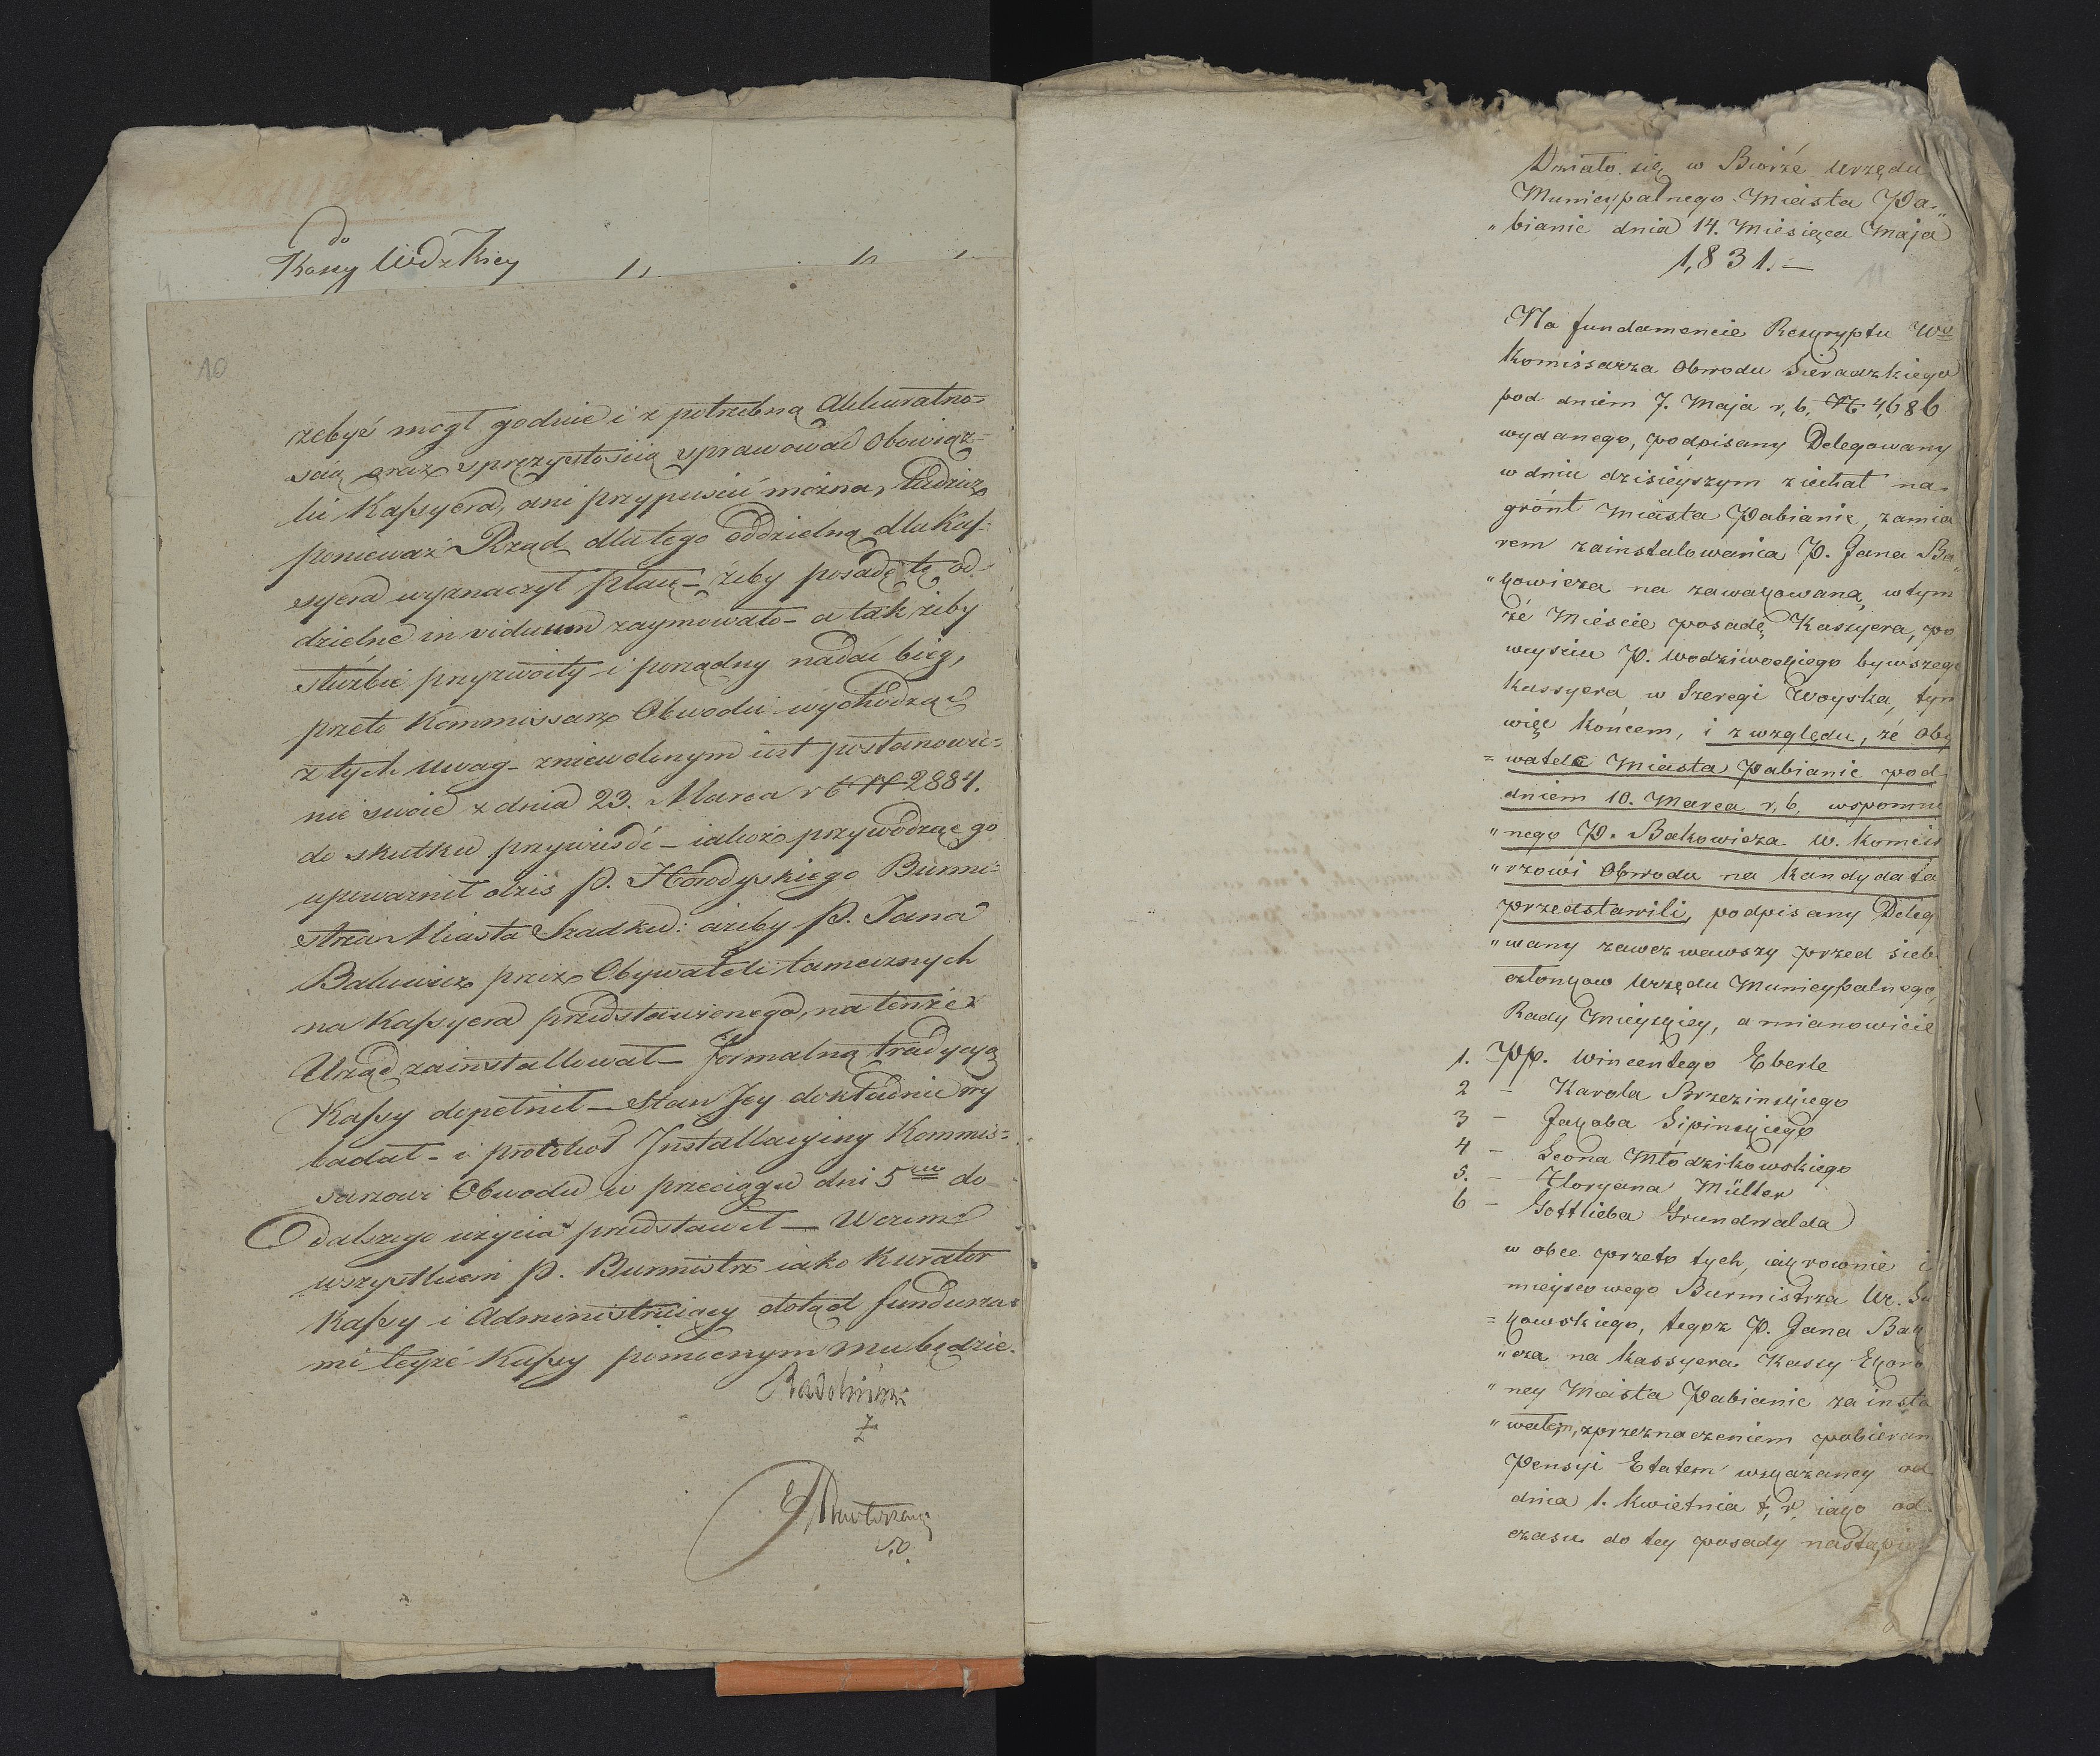 do
Kassy
10
żebyś mogł godnie i z potrzebną Akkuratno=
scią oraz sprężystością sprawować obowiąz=
ki Kassyera, ani przypuścić można, tudzież
ponieważ Rząd dla tego oddzielną dla Kas=
syera wyznaczył płacę – żeby posadę tę od=
dzielne individuum zaymowało – a tak żeby
służbie przyzwoity i porządny nadać bieg,
przeto Kommissarz Obwodu wychodząc
z tych uwag – zniewolonym iest postanowie=
nie swoie z dnia 23. Marca r b N 2884.
do skutku przywieść – iakoż przywodząc go
upoważnił dziś P. Horodyskiego Burmi=
strza Miasta Szadku: ażeby P. Jana
Bakowicz przez Obywateli tamecznych
na Kassyera przedstawionego, na tenże
Urząd zainstallował – formalną tradycyą
Kassy dopełnił – stan Jey dokładnie wy
badał – i protokoł Installacyiny Kommis=
sarzowi Obwodu w przeciągu dni 5ciu do
dalszego użycia przedstawił – W czem
wszystkiem P. Burmistrz iako Kurator
Kassy i Administruiący dotąd fundusza=
mi teyże Kassy pomocnym mu będzie.
11
Działo się w Biórze Urzędu
Municypalnego Miasta Pa=
"bianic dnia 14. Miesiąca Maja
1,831. –
Na fundamencie Reskryptu Wo
Komissarza Obwodu Sieradzkiego
pod dniem 7. Maja r, b, N 4,686
wydanego, podpisany Delegowany
w dniu dzisieyszym ziechał na
grónt Miasta Pabianic, zamia
rem zainstalowania P. Jana Ba
"kowicza na zawakowaną w tym
że Mieście posadę Kassyera, po
weyściu P. Wodziwockiego bywszego
Kassyera w Szeregi Woyska, tym
więc końcem, i z względu, że Oby
= watele Miasta Pabianic pod
dniem 10. Marca r, b, wspomnio
"nego P. Bakowicza W. Komissa
"rzowi Obwodu na kandydata
przedstawili, podpisany Deleg
"wany zawezwawszy przed sieb
członkow Urzędu Municypalnego,
Rady Mieyskiey, a mianowicie
1. PP. Wincentego Eberle
2 – Karola Brzezinskiego
3 – Jakoba Lipinskiego
4 – Leona Młodzikowskiego
5. – Floryana Müller
6 – Gottlieba Grundwalda
w obec przeto tych, iak rownie i
mieyscowego Burmistrza Ur. Su
= kowskiego, tegoz P. Jana Bak
"cza na kassyera Kassy Ekono
"ney Miasta Pabianic za insta
"wałem, z przeznaczeniem pobieran
Pensyi Etatem wskazaney od
dnia 1. Kwietnia t, r, iako od
czasu do tey posady nastąpi